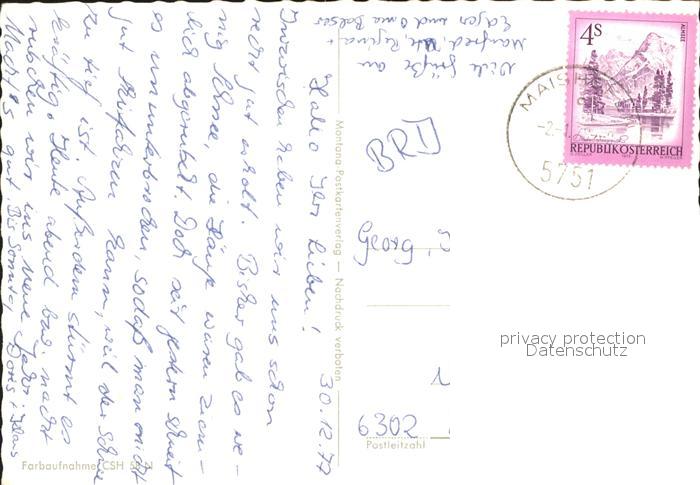 Hallo Ihr Lieben! 30.12.77
Inzwischen haben wir uns schon
recht gut erholt. Bisher gab es we-
nig Schnee, die Läufe waren ziem-
lich abgenutzt. Doch seit gestern schneit
es ununterbrochen, sodaß man nicht
gut Skifahren kann, weil der Schnee
zu tief ist. Außerdem stürmt es
kräftig. Heute abend bzw. nacht
rutschen wir ins Neue Jahr.
Macht's gut Bis Sonntag Doris + Klaus
Viele Grüße an
Manfred, Ute, Regina +
Edgar und Oma
Montana Postkartenverlag — Nachdruck verboten
Farbaufnahme CSH
BRD
Georg
6302
Postleitzahl
4S
ALMSEE
REPUBLIK ÖSTERREICH
MAISH
5751
privacy protection
Datenschutz